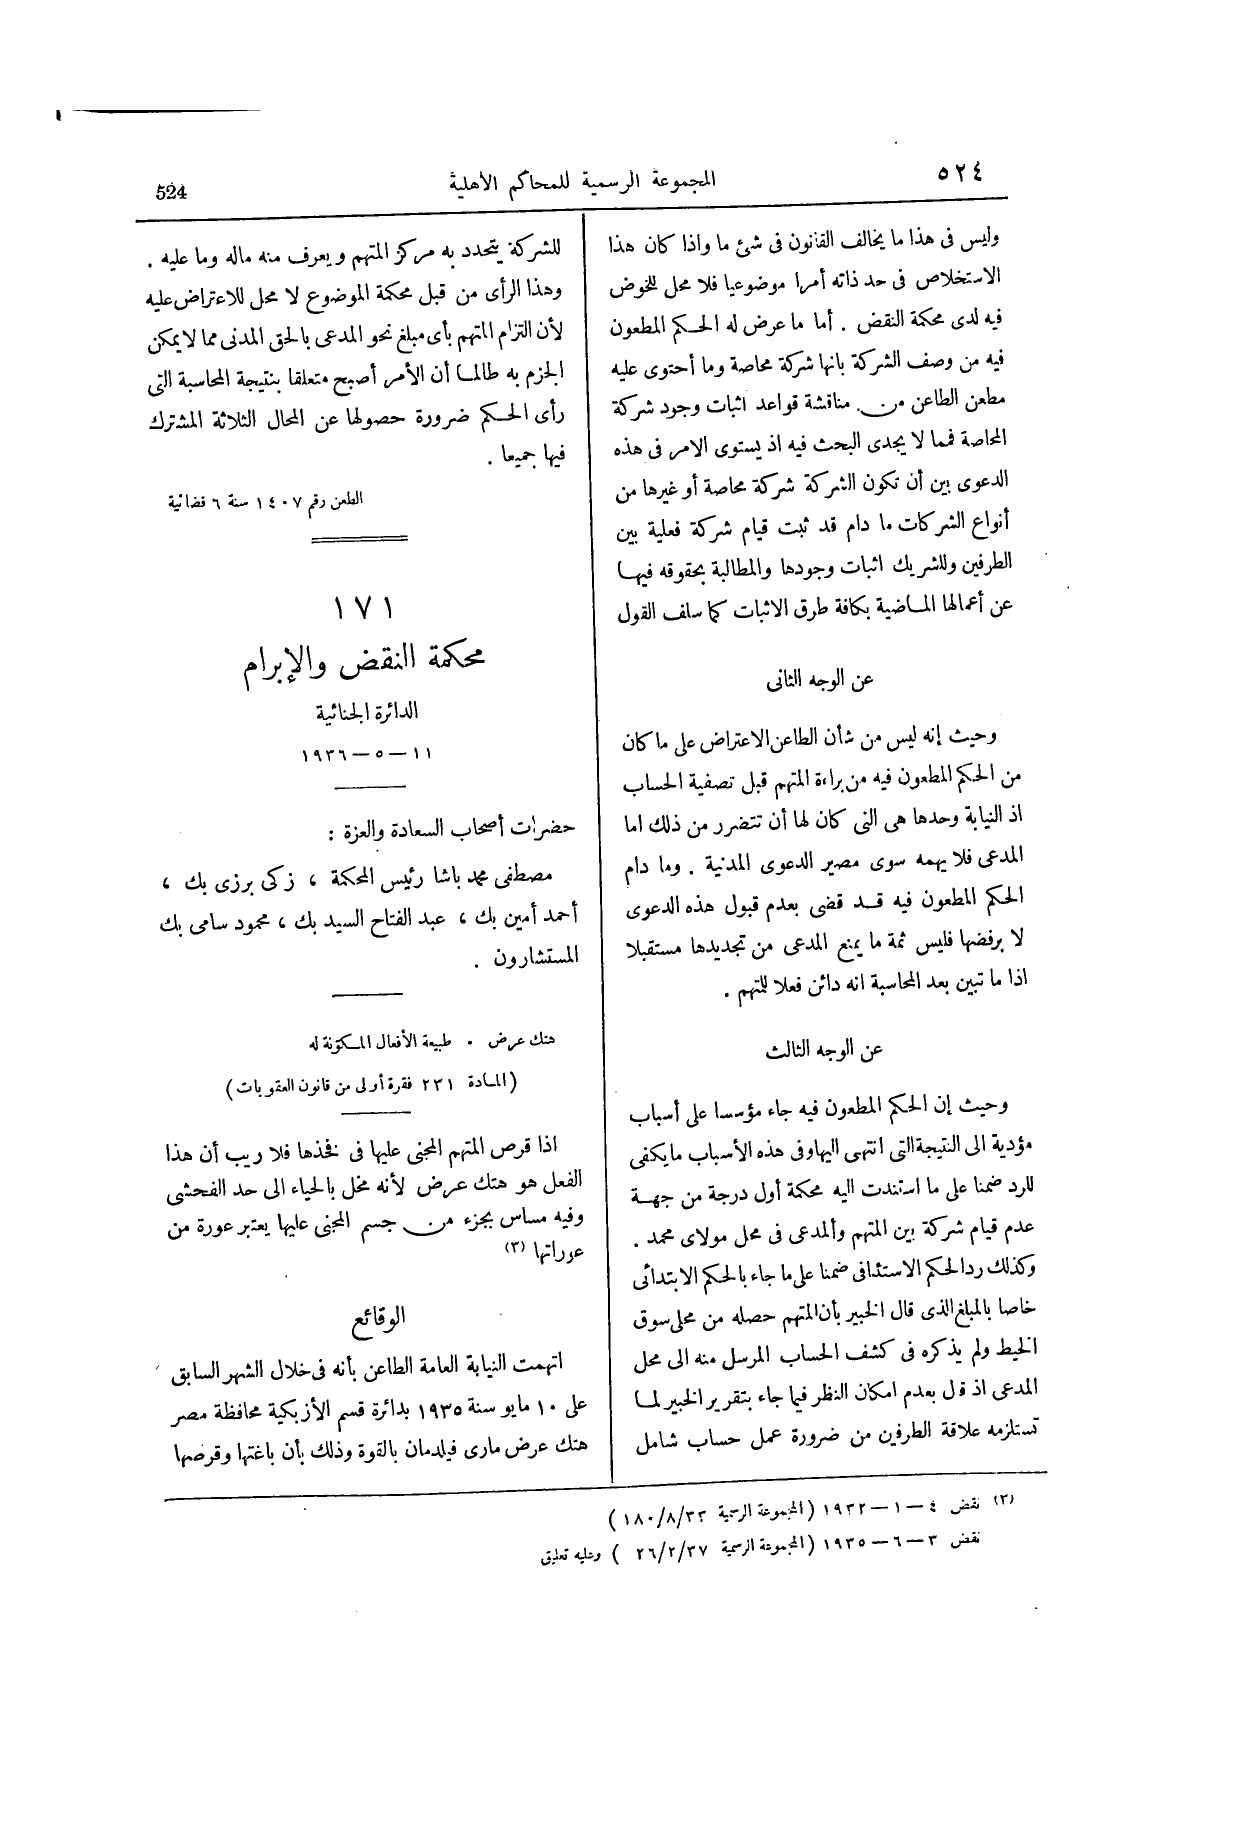 ٥٢٤
المجموعة الرسمية للمحاكم الأهلية
524
وليس فى هذا ما يخالف القانون فى شئ ما واذا كان هذا
الاستخلاص فى حد ذاته أمرا موضوعيا فلا محل للخوض
فيه لدى محكمة النقض . أما ما عرض له الحكم المطعون
فيه من وصف الشركة بانها شركة محاصة وما أحتوى عليه
مطعن الطاعن من مناقشة قواعد اثبات وجود شركة
المحاصة فمما لا يجدى البحث فيه اذ يستوى الامر فى هذه
الدعوى بين أن تكون الشركة شركة محاصة أو غيرها من
أنواع الشركات ما دام قد ثبت قيام شركة فعلية بين
الطرفين وللشريك اثبات وجودها والمطالبة بحقوقه فيها
عن أعمالها الماضية بكافة طرق الاثبات كما سلف القول
عن الوجه الثانى
وحيث إنه ليس من شأن الطاعن الاعتراض على ما كان
من الحكم المطعون فيه من براءة المتهم قبل تصفية الحساب
اذ النيابة وحدها هى التى كان لها أن تتضرر من ذلك اما
المدعى فلا يهمه سوى مصير الدعوى المدنية . وما دام
الحكم المطعون فيه قد قضى بعدم قبول هذه الدعوى
لا برفضها فليس ثمة ما يمنع المدعى من تجديدها مستقبلا
اذا ما تبين بعد المحاسبة انه دائن فعلا للمتهم .
عن الوجه الثالث
وحيث إن الحكم المطعون فيه جاء مؤسسا على أسباب
مؤدية الى النتيجة التى انتهى اليها وفى هذه الأسباب ما يكفى
للرد ضمنا على ما استندت اليه محكمة أول درجة من جهة
عدم قيام شركة بين المتهم والمدعى فى محل مولاى محمد .
وكذلك رد الحكم الاستئنافى ضمنا على ما جاء بالحكم الابتدائى
خاصا بالمبلغ الذى قال الخبير بأن المتهم حصله من محل سوق
الخيط ولم يذكره فى كشف الحساب المرسل منه الى محل
المدعى اذ قال بعدم امكان النظر فيما جاء بتقرير الخبير لما
تستلزمه علاقة الطرفين من ضرورة عمل حساب شامل
للشركة يتحدد به مركز المتهم ويعرف منه ماله وما عليه .
وهذا الرأى من قبل محكمة الموضوع لا محل للاعتراض عليه
لأن التزام المتهم بأى مبلغ نحو المدعى بالحق المدنى مما لا يمكن
الجزم به طالما أن الأمر أصبح متعلقا بنتيجة المحاسبة التى
رأى الحكم ضرورة حصولها عن المحال الثلاثة المشترك
فيها جميعا .
الطعن رقم ١٤٠٧ سنة ٦ قضائية
١٧١
محكمة النقض والإبرام
الدائرة الجنائية
١١ — ٥ — ١٩٣٦
حضرات أصحاب السعادة والعزة :
مصطفى محمد باشا رئيس المحكمة ، زكى برزى بك ،
أحمد أمين بك ، عبد الفتاح السيد بك ، محمود سامى بك
المستشارون .
هتك عرض . طبيعة الأفعال المكونة له
(المادة ٢٣١ فقرة أولى من قانون العقوبات)
اذا قرص المتهم المجنى عليها فى فخذها فلا ريب أن هذا
الفعل هو هتك عرض لأنه مخل بالحياء الى حد الفحشى
وفيه مساس بجزء من جسم المجنى عليها يعتبر عورة من
عوراتها (٣)
الوقائع
اتهمت النيابة العامة الطاعن بأنه فى خلال الشهر السابق
على ١٠ مايو سنة ١٩٣٥ بدائرة قسم الأزبكية محافظة مصر
هتك عرض مارى فيلدمان بالقوة وذلك بأن باغتها وقرصها
(٣) نقض ٤ — ١ — ١٩٣٢ (المجموعة الرسمية ٣٣/٨/١٨٠)
نقض ٣ — ٦ — ١٩٣٥ (المجموعة الرسمية ٣٧/٢/٢٦ ) وعليه تعليق